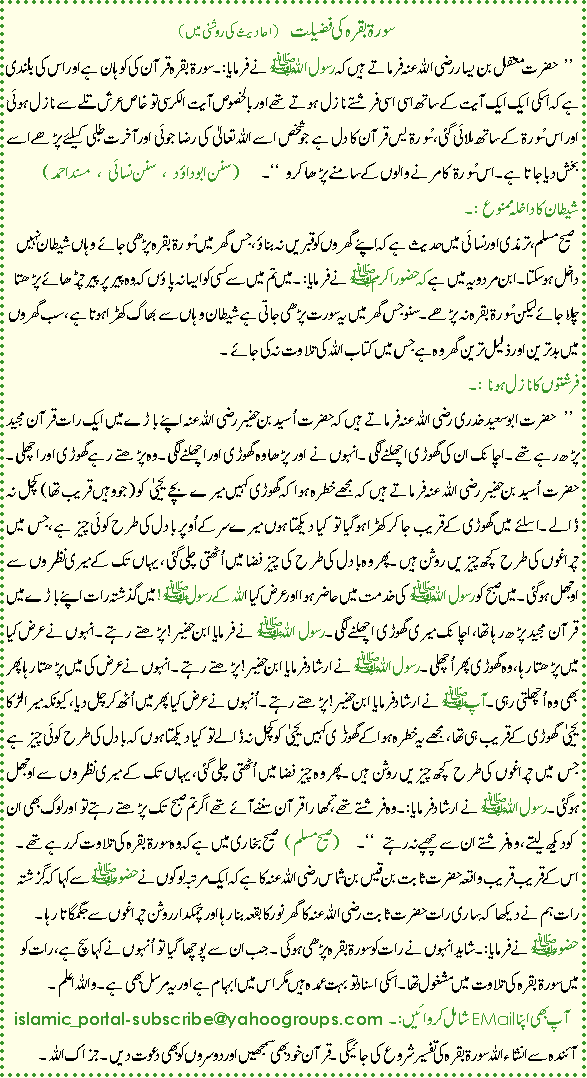 سورۃ بقرہ کی فضیلت (احادیث کی روشنی میں)
’’ حضرت معقل بن یسار رضی اللہ عنہ فرماتے ہیں کہ رسول اللہ ﷺ نے فرمایا:۔ سورۃ بقرہ قرآن کی کوہان ہے اور اس کی بلندی
یہ ہے کہ اسکی ایک ایک آیت کے ساتھ اسی اسی فرشتے نازل ہوتے تھے اور بالخصوص آیت الکرسی تو خاص عرش تلے سے نازل ہوئی
اور اس سُورۃ کے ساتھ ملائی گئی، سُورۃ یٰس قرآن کا دل ہے جو شخص اسے اللہ تعالیٰ کی رضا جوئی اور آخرت طلبی کیلئے پڑھے اسے
بخش دیا جاتا ہے۔ اس سُورۃ کا مرنے والوں کے سامنے پڑھا کرو ‘‘۔ (سنن ابو داؤد ، سنن نسائی ، مسند احمد)
شیطان کا داخلہ ممنوع :۔
صحیح مسلم، ترمذی اور نسائی میں حدیث ہے کہ اپنے گھروں کو قبریں نہ بناؤ، جس گھر میں سُورۃ بقرہ پڑھی جائے وہاں شیطان نہیں
داخل ہو سکتا۔ ابن مردویہ میں ہے کہ حضور اکرم ﷺ نے فرمایا:۔ میں تم میں سے کسی کو ایسا نہ پاؤں کہ وہ پیر پر پیر چڑھائے پڑھتا
چلا جائے لیکن سُورۃ بقرہ نہ پڑھے۔ سنو جس گھر میں یہ سورت پڑھی جاتی ہے شیطان وہاں سے بھاگ کھڑا ہوتا ہے، سب گھروں
میں بدترین اور ذلیل ترین گھر وہ ہے جس میں کتاب اللہ کی تلاوت نہ کی جائے ۔
فرشتوں کا نازل ہونا :۔
’’ حضرت ابو سعید خدری رضی اللہ عنہ فرماتے ہیں کہ حضرت اُسید بن حضیر رضی اللہ عنہ اپنے باڑے میں ایک رات قرآن مجید
پڑھ رہے تھے۔ اچانک ان کی گھوڑی اچھلنے لگی۔ انہوں نے اور پڑھا وہ گھوڑی اور اچھلنے لگی۔ وہ پڑھتے رہے گھوڑی اور اچھلی۔
حضرت اُسید بن حضیر رضی اللہ عنہ فرماتے ہیں کہ مجھے خطرہ ہوا کہ گھوڑی کہیں میرے بچے یحیٰی کو (جو وہیں قریب تھا) کچل نہ
ڈالے۔ اسلئے میں گھوڑی کے قریب جا کر کھڑا ہو گیا تو کیا دیکھتا ہوں میرے سر کے اُوپر بادل کی طرح کوئی چیز ہے، جس میں
چراغوں کی طرح کچھ چیزیں روشن ہیں۔ پھر وہ بادل کی طرح کی چیز فضا میں اُٹھتی چلی گئی، یہاں تک کے میری نظروں سے
اوجھل ہوگئی۔ میں صبح کو رسول اللہ ﷺ کی خدمت میں حاضر ہوا اور عرض کیا اللہ کے رسول ﷺ! میں گذشتہ رات اپنے باڑے میں
قرآن مجید پڑھ رہا تھا، اچانک میری گھوڑی اچھلنے لگی۔ رسول اللہ ﷺ نے فرمایا ابن حضیر! پڑھتے رہتے۔ انہوں نے عرض کیا
میں پڑھتا رہا، وہ گھوڑی پھر اُچھلی۔ رسول اللہ ﷺ نے ارشاد فرمایا ابن حضیر! پڑھتے رہتے۔ انہوں نے عرض کی میں پڑھتا رہا پھر
بھی وہ اُچھلتی رہی۔ آپ ﷺ نے ارشاد فرمایا ابن حضیر! پڑھتے رہتے۔ اُنہوں نے عرض کیا پھر میں اُٹھ کر چل دیا، کیونکہ میرا لڑکا
یحیٰی گھوڑی کے قریب ہی تھا، مجھے یہ خطرہ ہوا کے گھوڑی کہیں یحیٰی کو کچل نہ ڈالے تو کیا دیکھتا ہوں کہ بادل کی طرح کوئی چیز ہے
جس میں چراغوں کی طرح کچھ چیزیں روشن ہیں۔ پھر وہ چیز فضا میں اُٹھتی چلی گئی، یہاں تک کے میری نظروں سے اوجھل
ہوگئی۔ رسول اللہ ﷺ نے ارشاد فرمایا:۔ وہ فرشتے تھے، تمھارا قرآن سننے آئے تھے اگر تم صبح تک پڑھتے رہتے تو اور لوگ بھی ان
کو دیکھ لیتے، وہ فرشتے ان سے چھپے نہ رہتے ‘‘۔ (صحیح مسلم) صحیح بخاری میں ہے کہ وہ سورۃ بقرہ کی تلاوت کر رہے تھے ۔
اس کے قریب قریب واقعہ حضرت ثابت بن قیس بن شماس رضی اللہ عنہ کا ہے کہ ایک مرتبہ لوکوں نے حضور ﷺ سے کہا کہ گزشتہ
رات ہم نے دیکھا کہ ساری رات حضرت ثابت رضی اللہ عنہ کا گھر نور کا بقعہ بنا رہا اور چمکدار روشن چراغوں سے جگمگاتا رہا۔
حضور ﷺ نے فرمایا:۔ شاید انہوں نے رات کو سورۃ بقرہ پڑھی ہوگی۔ جب ان سے پوچھا گیا تو اُنہوں نے کہا سچ ہے، رات کو
میں سورۃ بقرہ کی تلاوت میں مشغول تھا۔ اسکی اسناد تو بہت عمدہ ہیں مگر اس میں ابہام ہے اور یہ مرسل بھی ہے۔ واللہ اعلم ۔
آپ بھی اپنا EMail شامل کروائیں:۔ islamic_portal-subscribe@yahoogroups.com
آئندہ سے انشاء اللہ سورۃ بقرہ کی تفسیر شروع کی جائیگی۔ قرآن خود بھی سمجھیں اور دوسروں کو بھی دعوت دیں۔ جزاک اللہ ۔